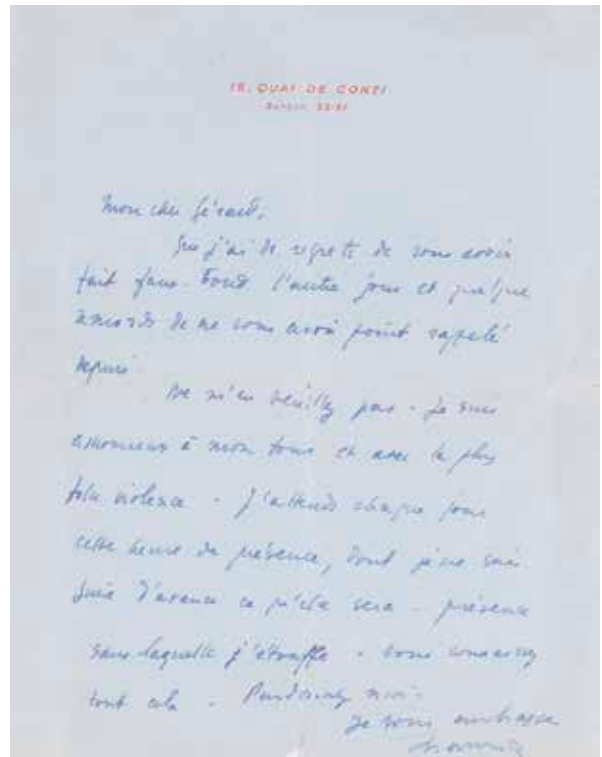 18, QUAI DE CONTI
Danton 22-81
Mon cher Gérard,
Que j'ai de regrets de vous avoir
fait faux-bond l'autre jour et quelque
remords de ne vous avoir point rappelé
depuis.
Ne m'en veuillez pas. Je suis
amoureux à mon tour et avec la plus
folle violence. J'attends chaque jour
cette heure de présence, dont je ne sais
jamais d'avance ce qu'elle sera - présence
sans laquelle j'étouffe. Vous connaissez
tout cela. Pardonnez moi.
Je vous embrasse